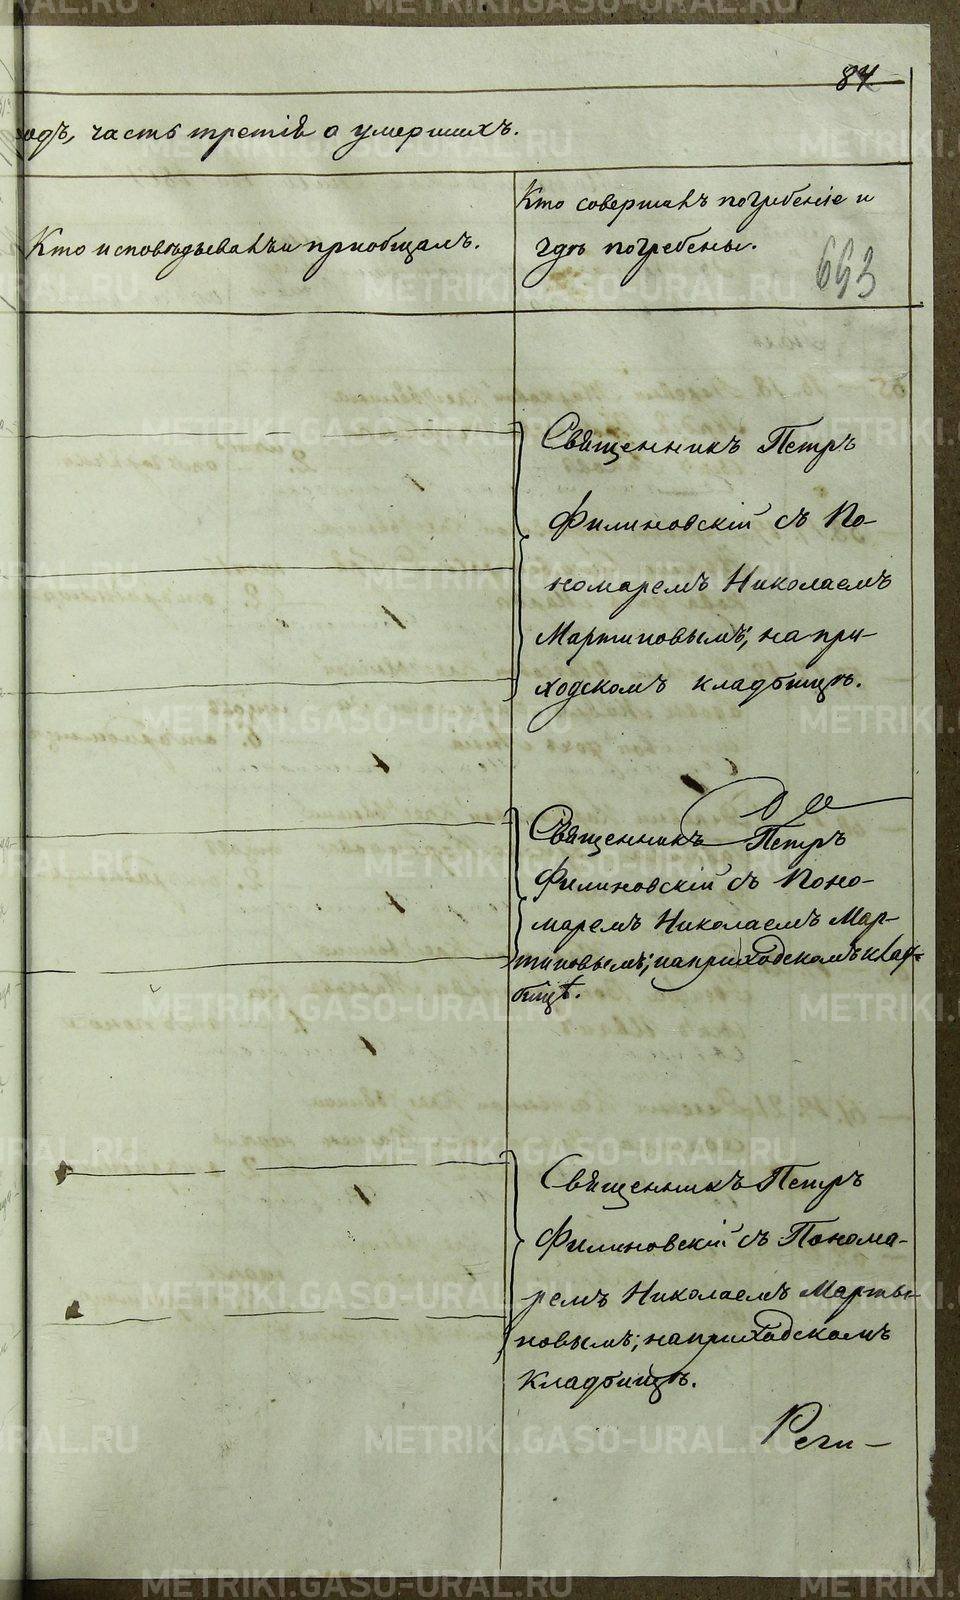 84
одъ, часть третія о умершихъ.
Кто исповѣдывалъ и приобщалъ.
Кто совершалъ погребеніе и
гдѣ погребены.
693
Священникъ Петръ
Филиновскій съ По-
номаремъ Николаемъ
Мартиновымъ; на при-
ходскомъ кладбищѣ.
Священникъ Петръ
Филиновскій съ Поно-
маремъ Николаемъ Мар-
тиновымъ; на приходскомъ клад-
бищѣ.
Священникъ Петръ
Филиновскій съ Понома-
ремъ Николаемъ Марты-
новымъ; на приходскомъ
кладбищѣ.
Реги-
METRIKI.GASO-URAL.RU